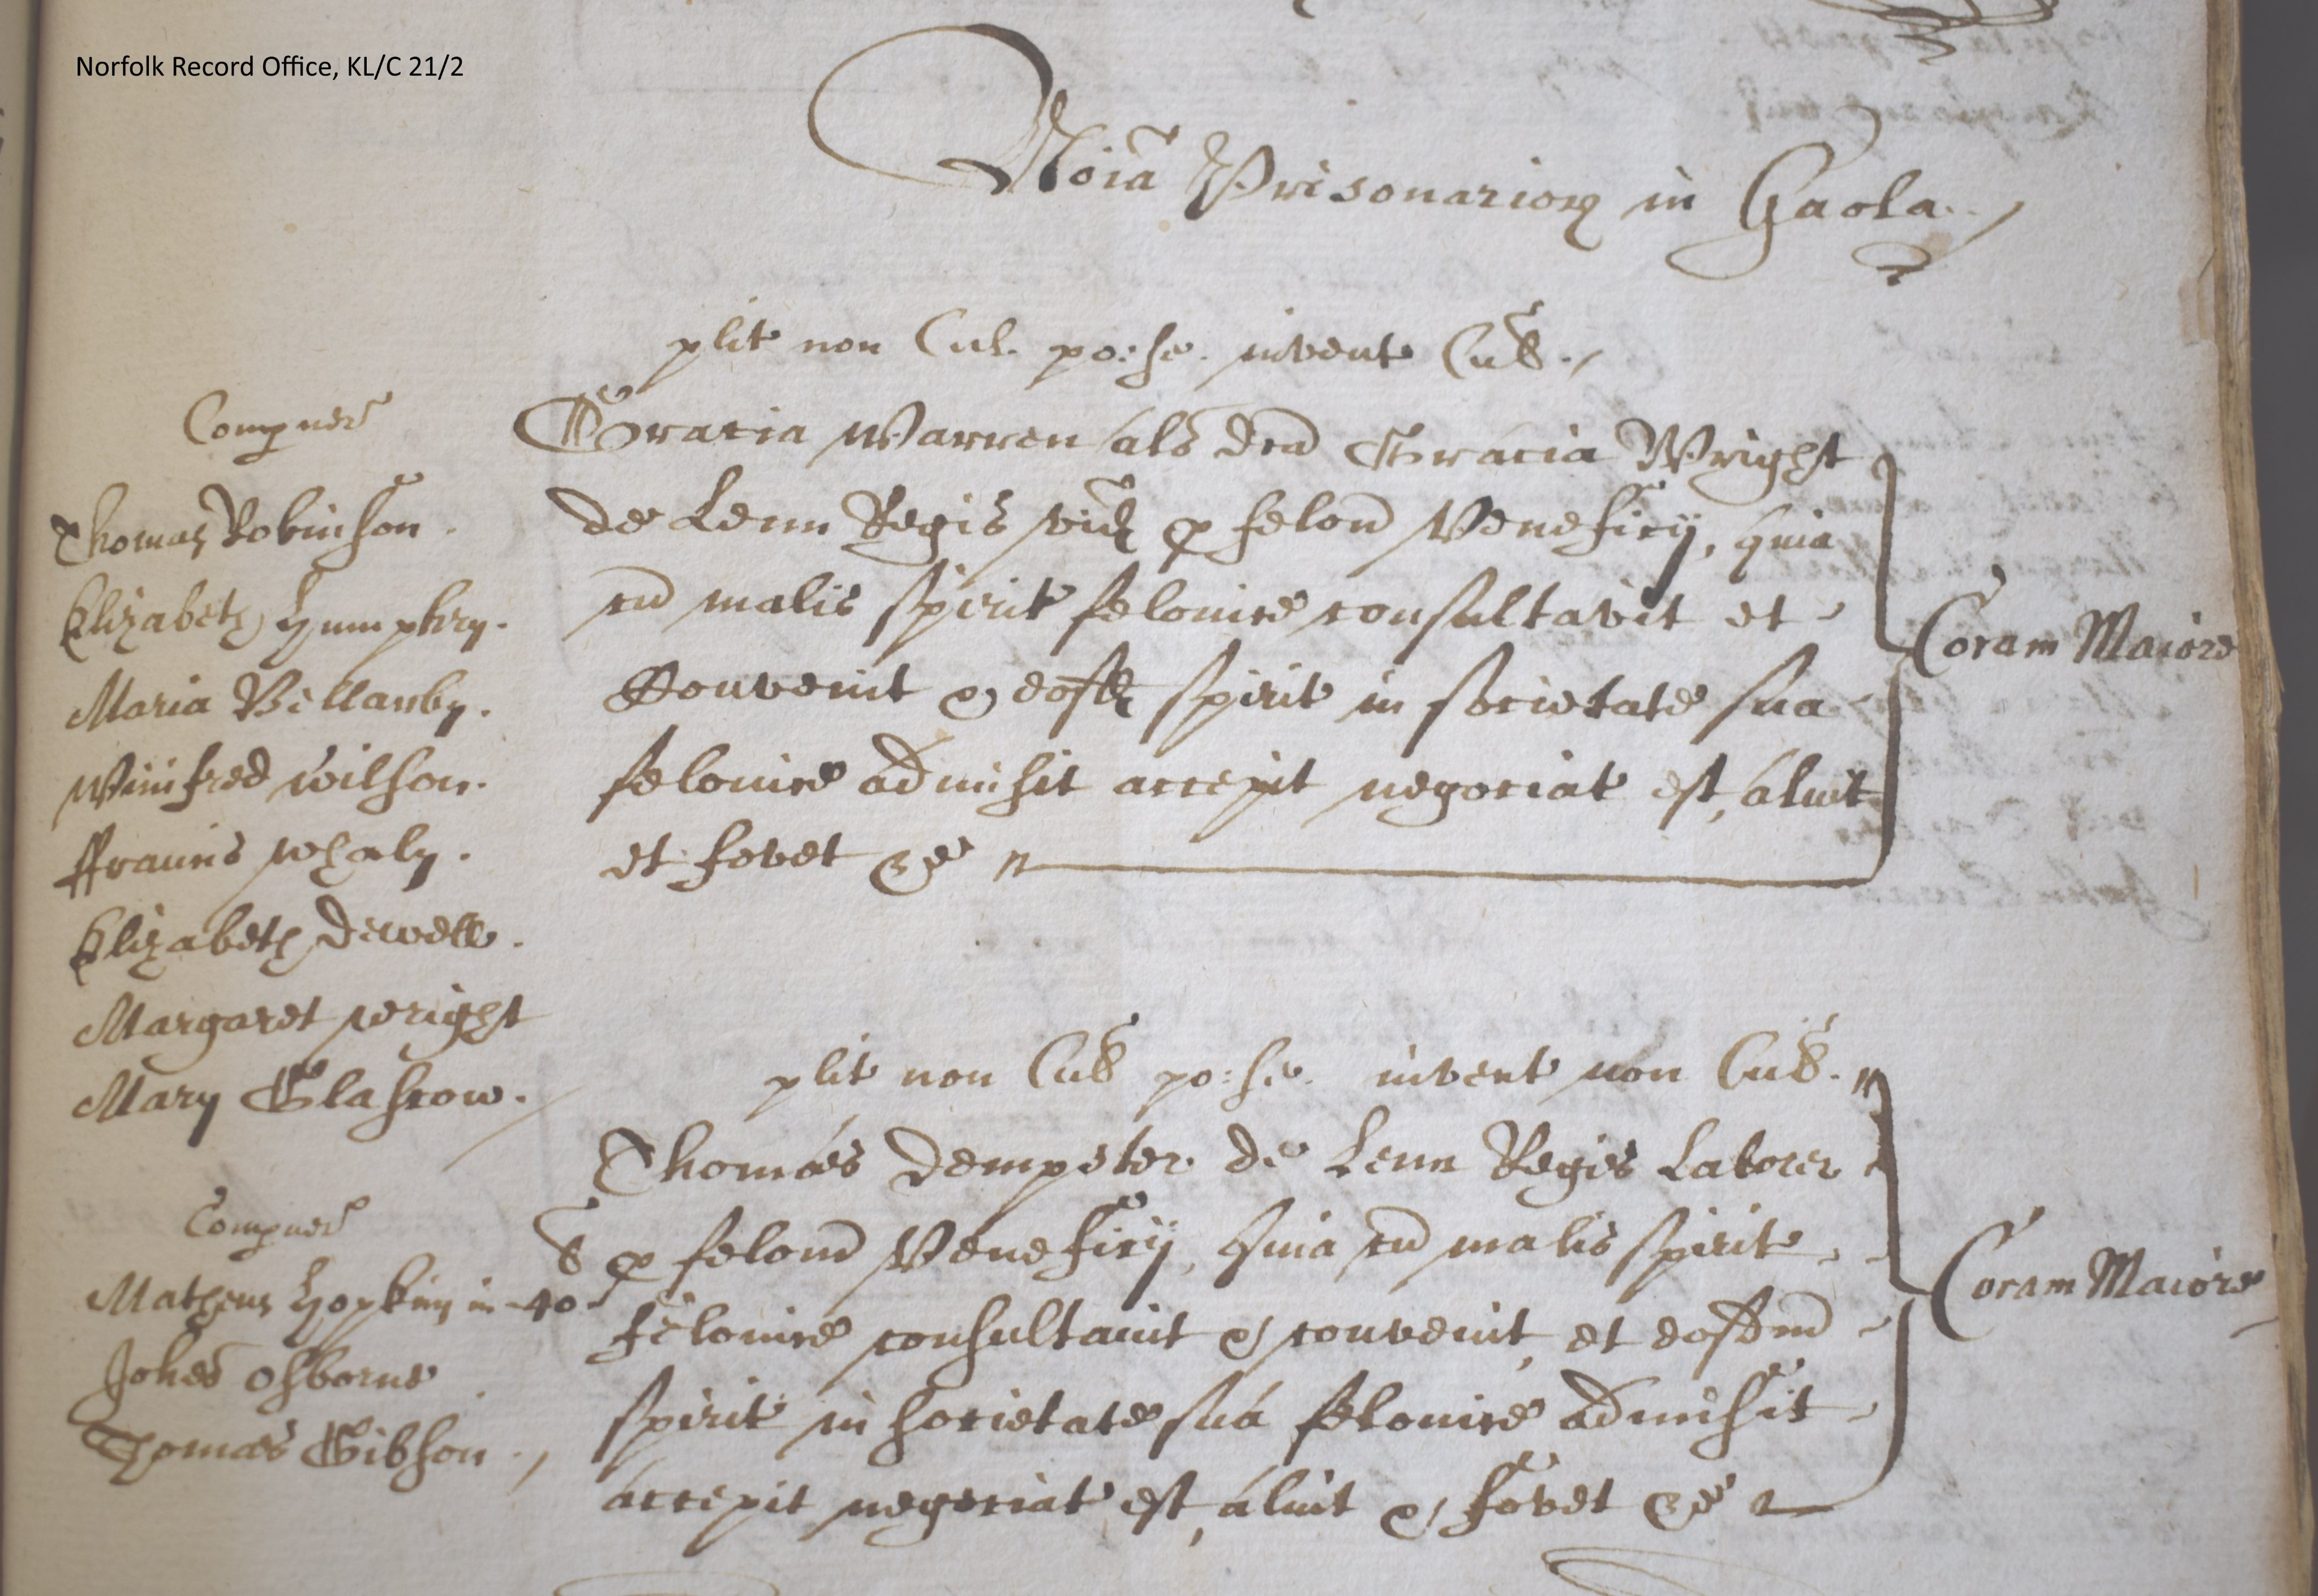 Norfolk Record Office, KL/C 21/2
Noīa Prisonarior in Gaola
plit non Cul. po: se. invent Cul.
Compuer
Thomas Robinson.
Elizabeth Humphry.
Maria Bellamby.
Winifred Wilson.
ffrauncis Whaly.
Elizabeth Dewell.
Margaret Wright
Mary Glascow.
Gracia Warren als dcā Gracia Wright
de Lenn Regis vid p felon Veneficij, quia
cū malis spirit felonice consultavit et
Convenit & eosd spirit in societate sua
felonice admisit accepit negociat est, aluit
et fovet &c
Coram Maiore
plit non Cul po: se. invent non Cul.
Compuer
Matheus Hopkins in 40
Johes Osborne
Thomas Gibson.
Thomas Dempster de Lenn Regis Laborer
p felon Veneficij, quia cū malis spirit
felonice consultauit & convenit, et eosdm
spirit in societate sua felonice admisit
accepit negociat est, aluit & fovet &c
Coram Maiore